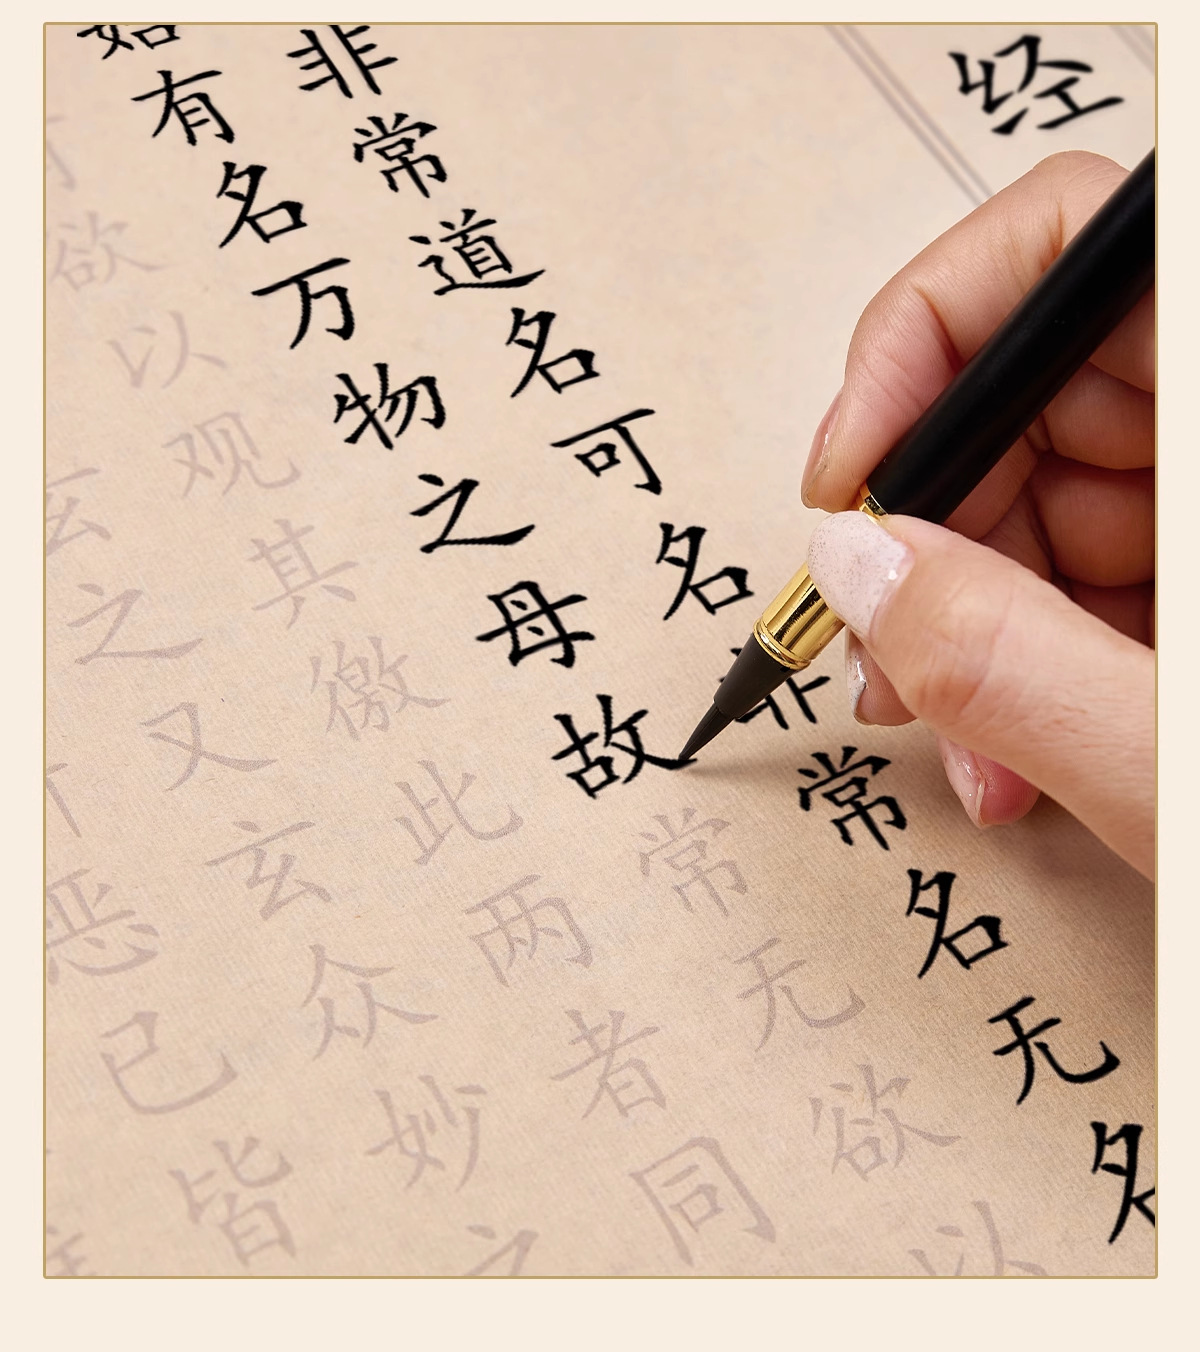 经
非常道名可名非常名无名
始有名万物之母故常无欲以
欲以观其徼此两者同
玄之又玄众妙之
恶已皆